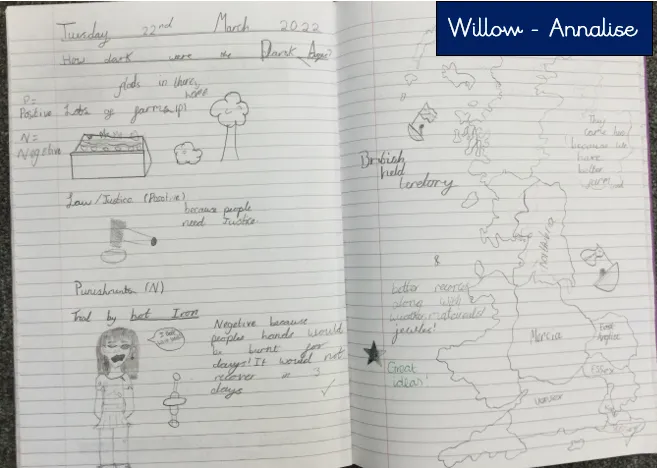 Willow - Annalise
Tuesday 22nd March 2022
How dark were the Dark Ages?
P=
Positive
Lots of farms (P)
N=
Negitive
Law/Justice (Positive)
because people
need Justice
Punishments (N)
Trial by hot Iron
Negitive because
peoples hands would
be burnt for
days! It would not
recover in 3
days
They
come here
because we
have
better
British
held
teretory
Northumbria
&
better
along with
weather, materials
jewles!
Great
ideas!
Mercia
East
Anglia
Essex
Wessex